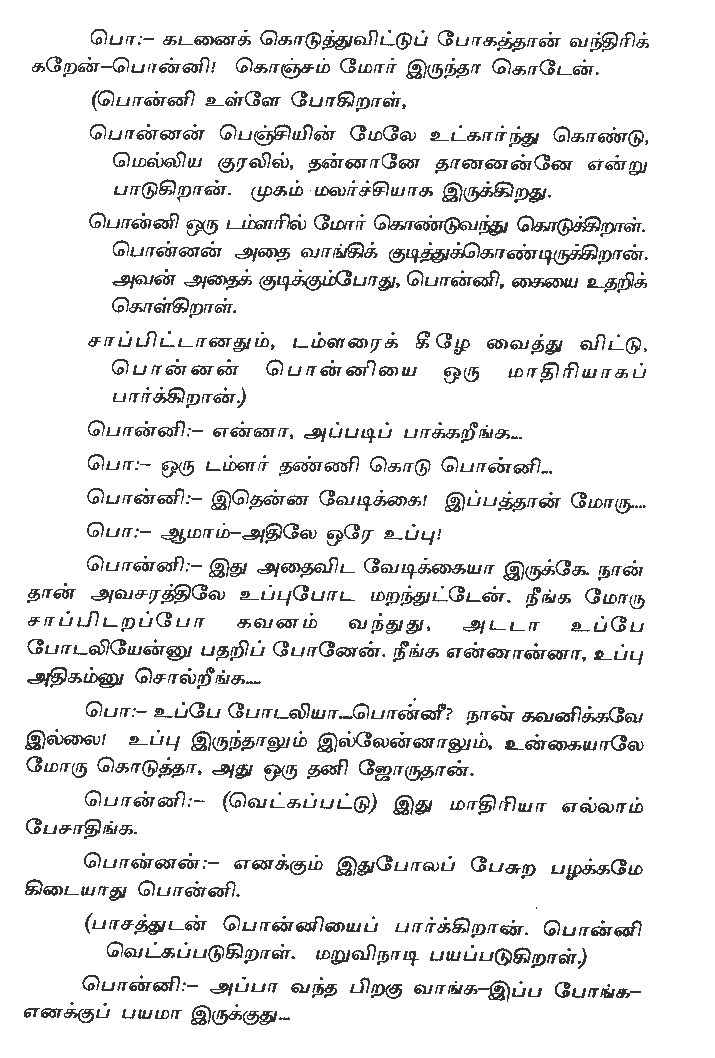 பொ:– கடனைக் கொடுத்துவிட்டுப் போகத்தான் வந்திரிக்
கறேன்–பொன்னி! கொஞ்சம் மோர் இருந்தா கொடேன்.
(பொன்னி உள்ளே போகிறாள்,
பொன்னன் பெஞ்சியின் மேலே உட்கார்ந்து கொண்டு,
மெல்லிய குரலில், தன்னானே தானனன்னே என்று
பாடுகிறான். முகம் மலர்ச்சியாக இருக்கிறது.
பொன்னி ஒரு டம்ளரில் மோர் கொண்டுவந்து கொடுக்கிறாள்.
பொன்னன் அதை வாங்கிக் குடித்துக்கொண்டிருக்கிறான்.
அவன் அதைக் குடிக்கும்போது, பொன்னி, கையை உதறிக்
கொள்கிறாள்.
சாப்பிட்டானதும், டம்ளரைக் கீழே வைத்து விட்டு,
பொன்னன் பொன்னியை ஒரு மாதிரியாகப்
பார்க்கிறான்.)
பொன்னி:– என்னா, அப்படிப் பாக்கறீங்க...
பொ:– ஒரு டம்ளர் தண்ணி கொடு பொன்னி...
பொன்னி:– இதென்ன வேடிக்கை! இப்பத்தான் மோரு....
பொ:– ஆமாம்–அதிலே ஒரே உப்பு!
பொன்னி:– இது அதைவிட வேடிக்கையா இருக்கே. நான்
தான் அவசரத்திலே உப்புபோட மறந்துட்டேன். நீங்க மோரு
சாப்பிடறப்போ கவனம் வந்துது, அடடா உப்பே
போடலியேன்னு பதறிப் போனேன். நீங்க என்னான்னா, உப்பு
அதிகம்னு சொல்றீங்க....
பொ:– உப்பே போடலியா...பொன்னீ? நான் கவனிக்கவே
இல்லை! உப்பு இருந்தாலும் இல்லேன்னாலும், உன்கையாலே
மோரு கொடுத்தா, அது ஒரு தனி ஜோருதான்.
பொன்னி:– (வெட்கப்பட்டு) இது மாதிரியா எல்லாம்
பேசாதிங்க.
பொன்னன்:– எனக்கும் இதுபோலப் பேசுற பழக்கமே
கிடையாது பொன்னி.
(பாசத்துடன் பொன்னியைப் பார்க்கிறான். பொன்னி
வெட்கப்படுகிறாள். மறுவிநாடி பயப்படுகிறாள்.)
பொன்னி:– அப்பா வந்த பிறகு வாங்க–இப்ப போங்க–
எனக்குப் பயமா இருக்குது...